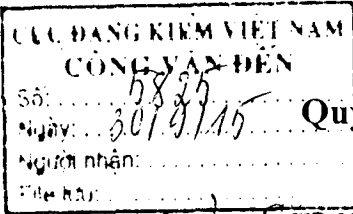 CỤC ĐĂNG KIỂM VIỆT NAM
CÔNG VĂN ĐẾN
Số: 5825
Ngày: 30/9/15
Người nhận:
File lưu:
Qu